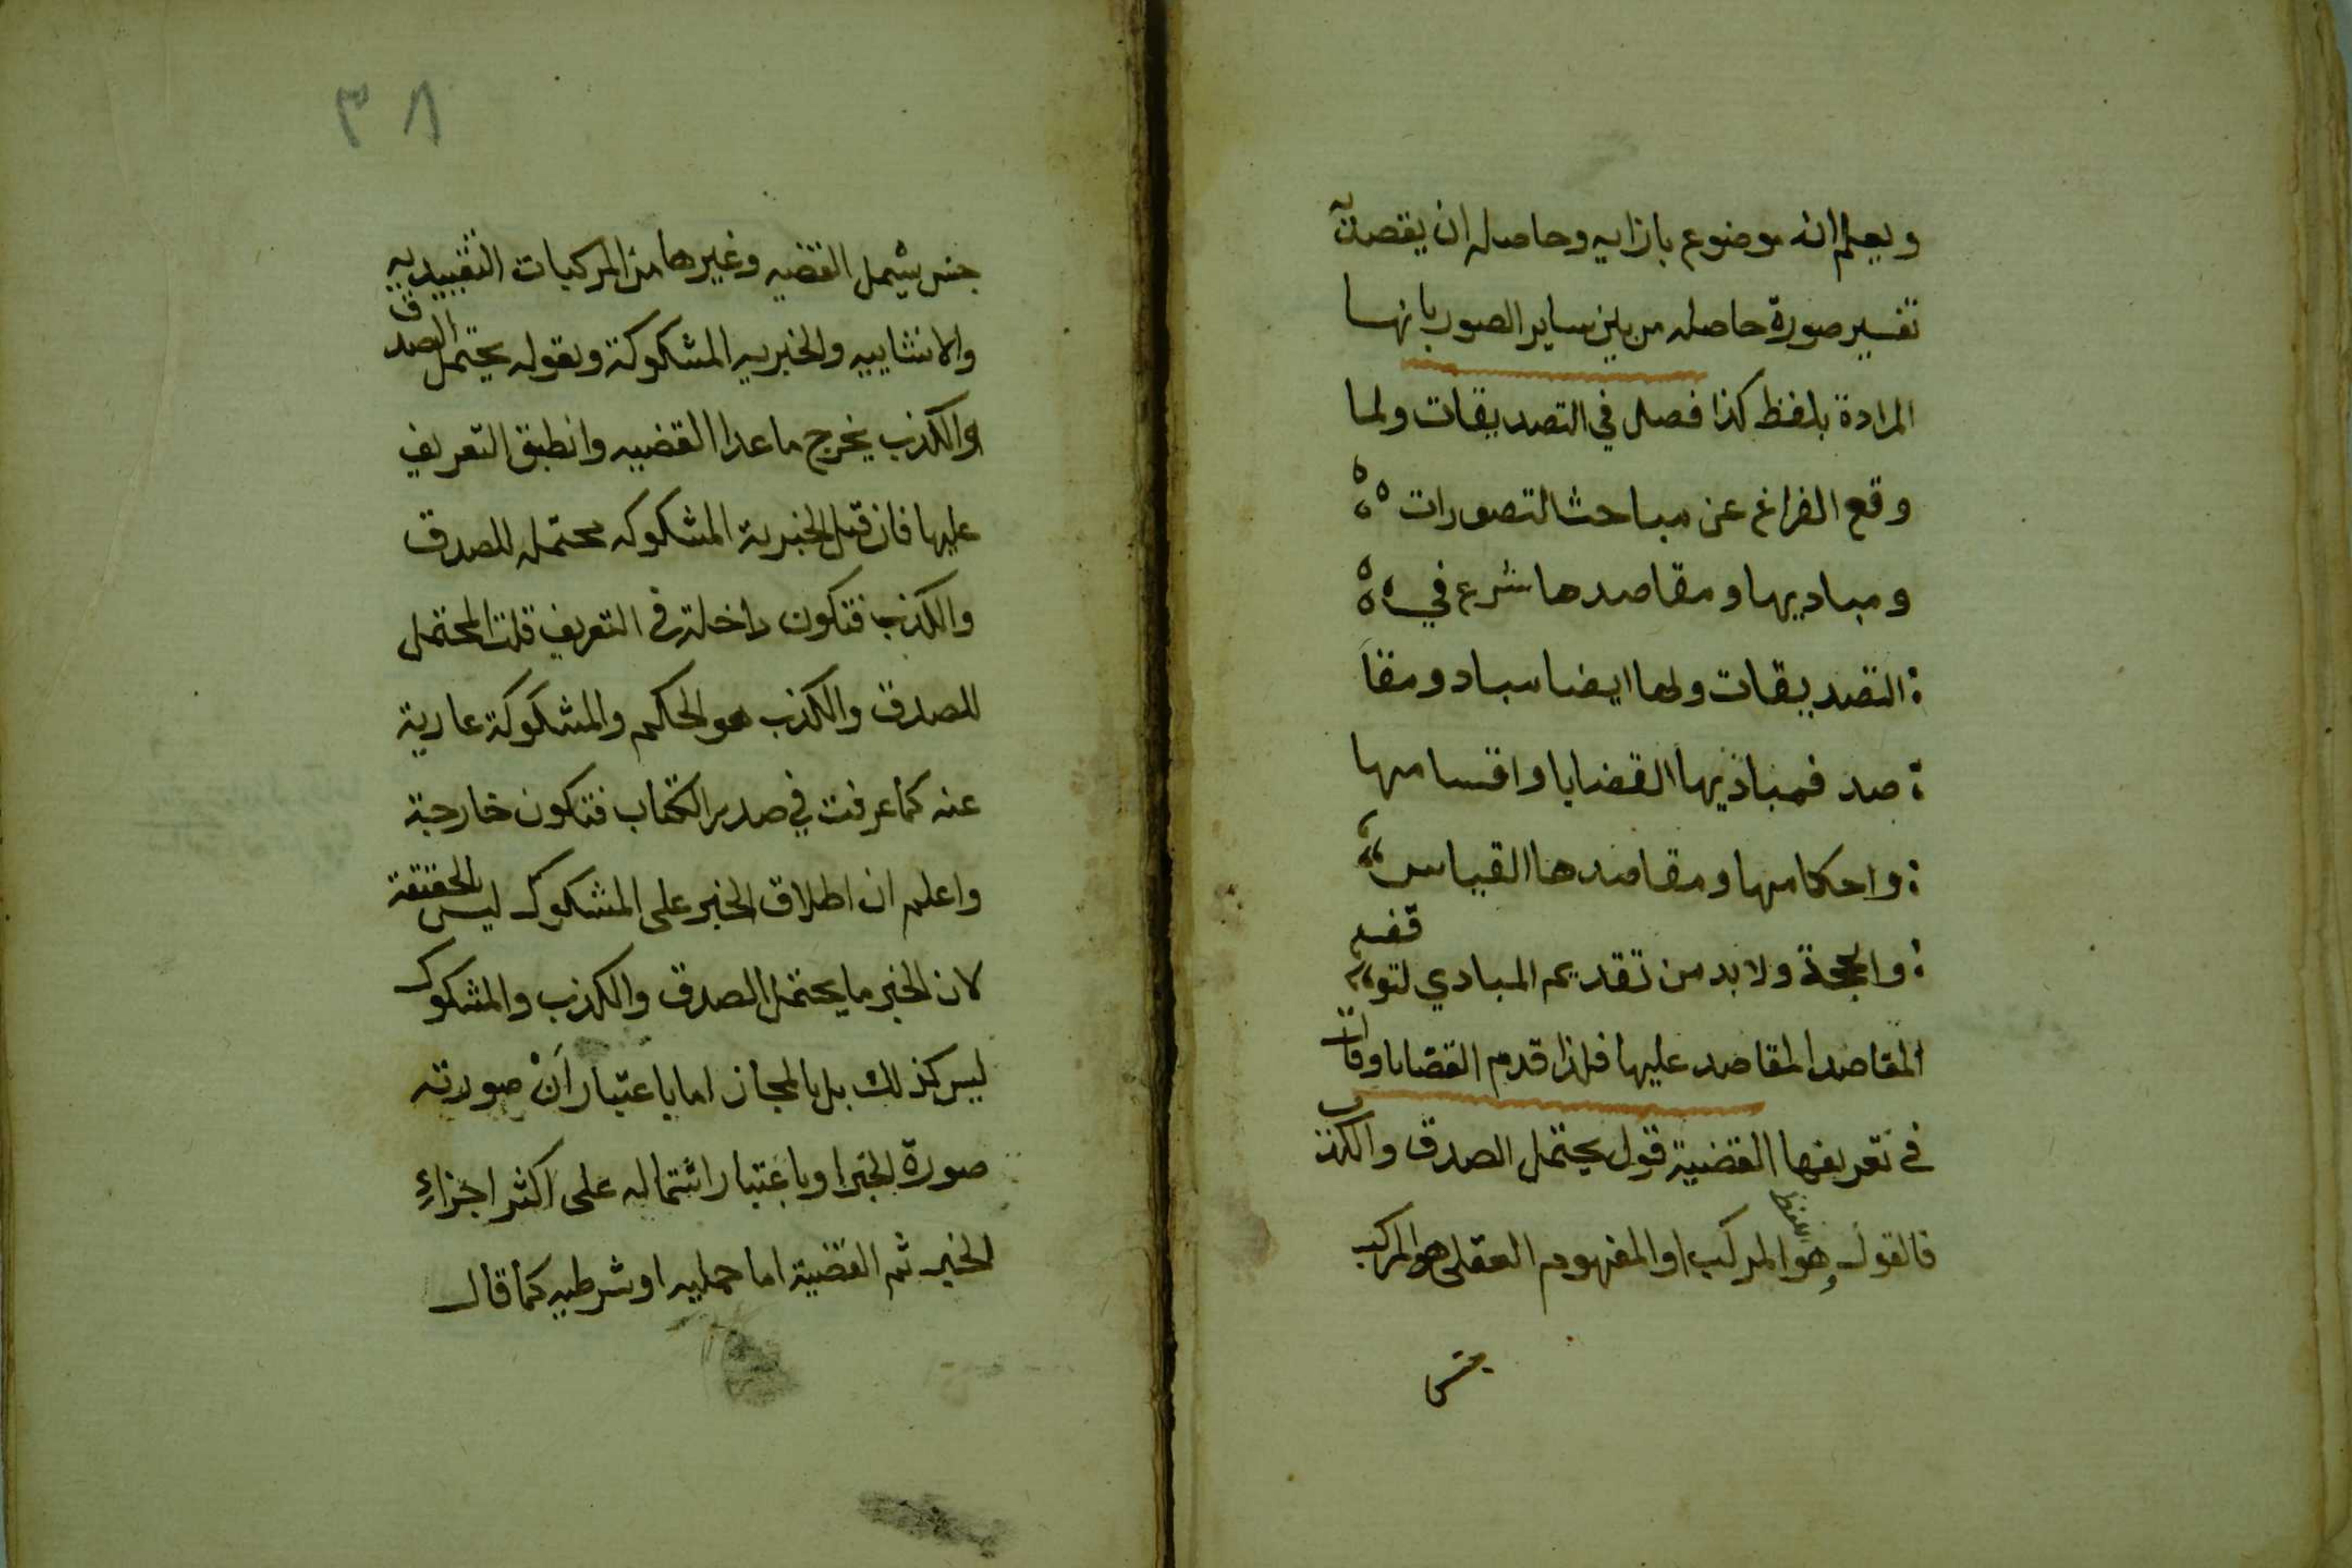 ويعلم انه موضوع بازايه وحاصله ان يقصد
تفسير صورة حاصله من بين ساير الصور بانها
المرادة بلفظ كذا فصل في التصديقات ولما
وقع الفراغ عن مباحث التصورات
ومباديها ومقاصدها شرع في
التصديقات ولها ايضا مباد ومقا
صد فمباديها القضايا واقسامها
واحكامها ومقاصدها القياس
والحجة ولابد من تقديم المبادي لتوقف
المقاصد المقاصد عليها فلذا قدم القضايا وقال
في تعريفها القضية قول يحتمل الصدق والكذب
فالقول وهو اللفظ المركب او المفهوم العقلي المركب
جنس
٣٨
جنس يشمل القضيه وغيرها من المركبات التقييديه
والانشاييه والخبريه المشكوكة وبقوله يحتمل الصدق
والكذب يخرج ما عدا القضيه وانطبق التعريف
عليها فان قيل الخبرية المشكوكه محتمله للصدق
والكذب فتكون داخلة في التعريف قلت المحتمل
للصدق والكذب هو الحكم والمشكوكة عارية
عنه كما عرفت في صدر الكتاب فتكون خارجة
واعلم ان اطلاق الخبر على المشكوك ليس بالحقيقة
لان الخبر ما يحتمل الصدق والكذب والمشكوك
ليس كذلك بل بالمجاز اما باعتبار أنْ صورته
صورة الخبر او باعتبار اشتماله على اكثر اجزاءِ
الخبر ثم القضية اما حمليه او شرطيه كما قال